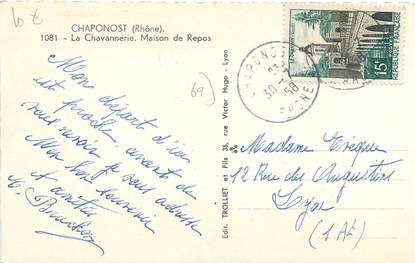 10 €
CHAPONOST (Rhône).
1081 - La Chavannerie. Maison de Repos
69
Mon départ d'ici
est proche, avant de
vous revoir je vous adresse
Mon bon souvenir
et amitiés
Edit. TROLLIET et Fils 35, rue Victor Hugo - Lyon
CHAPONOST
30-7 58
RHONE
15F
Madame Evêque
12 Rue des Augustins
Lyon
(1 Ar)